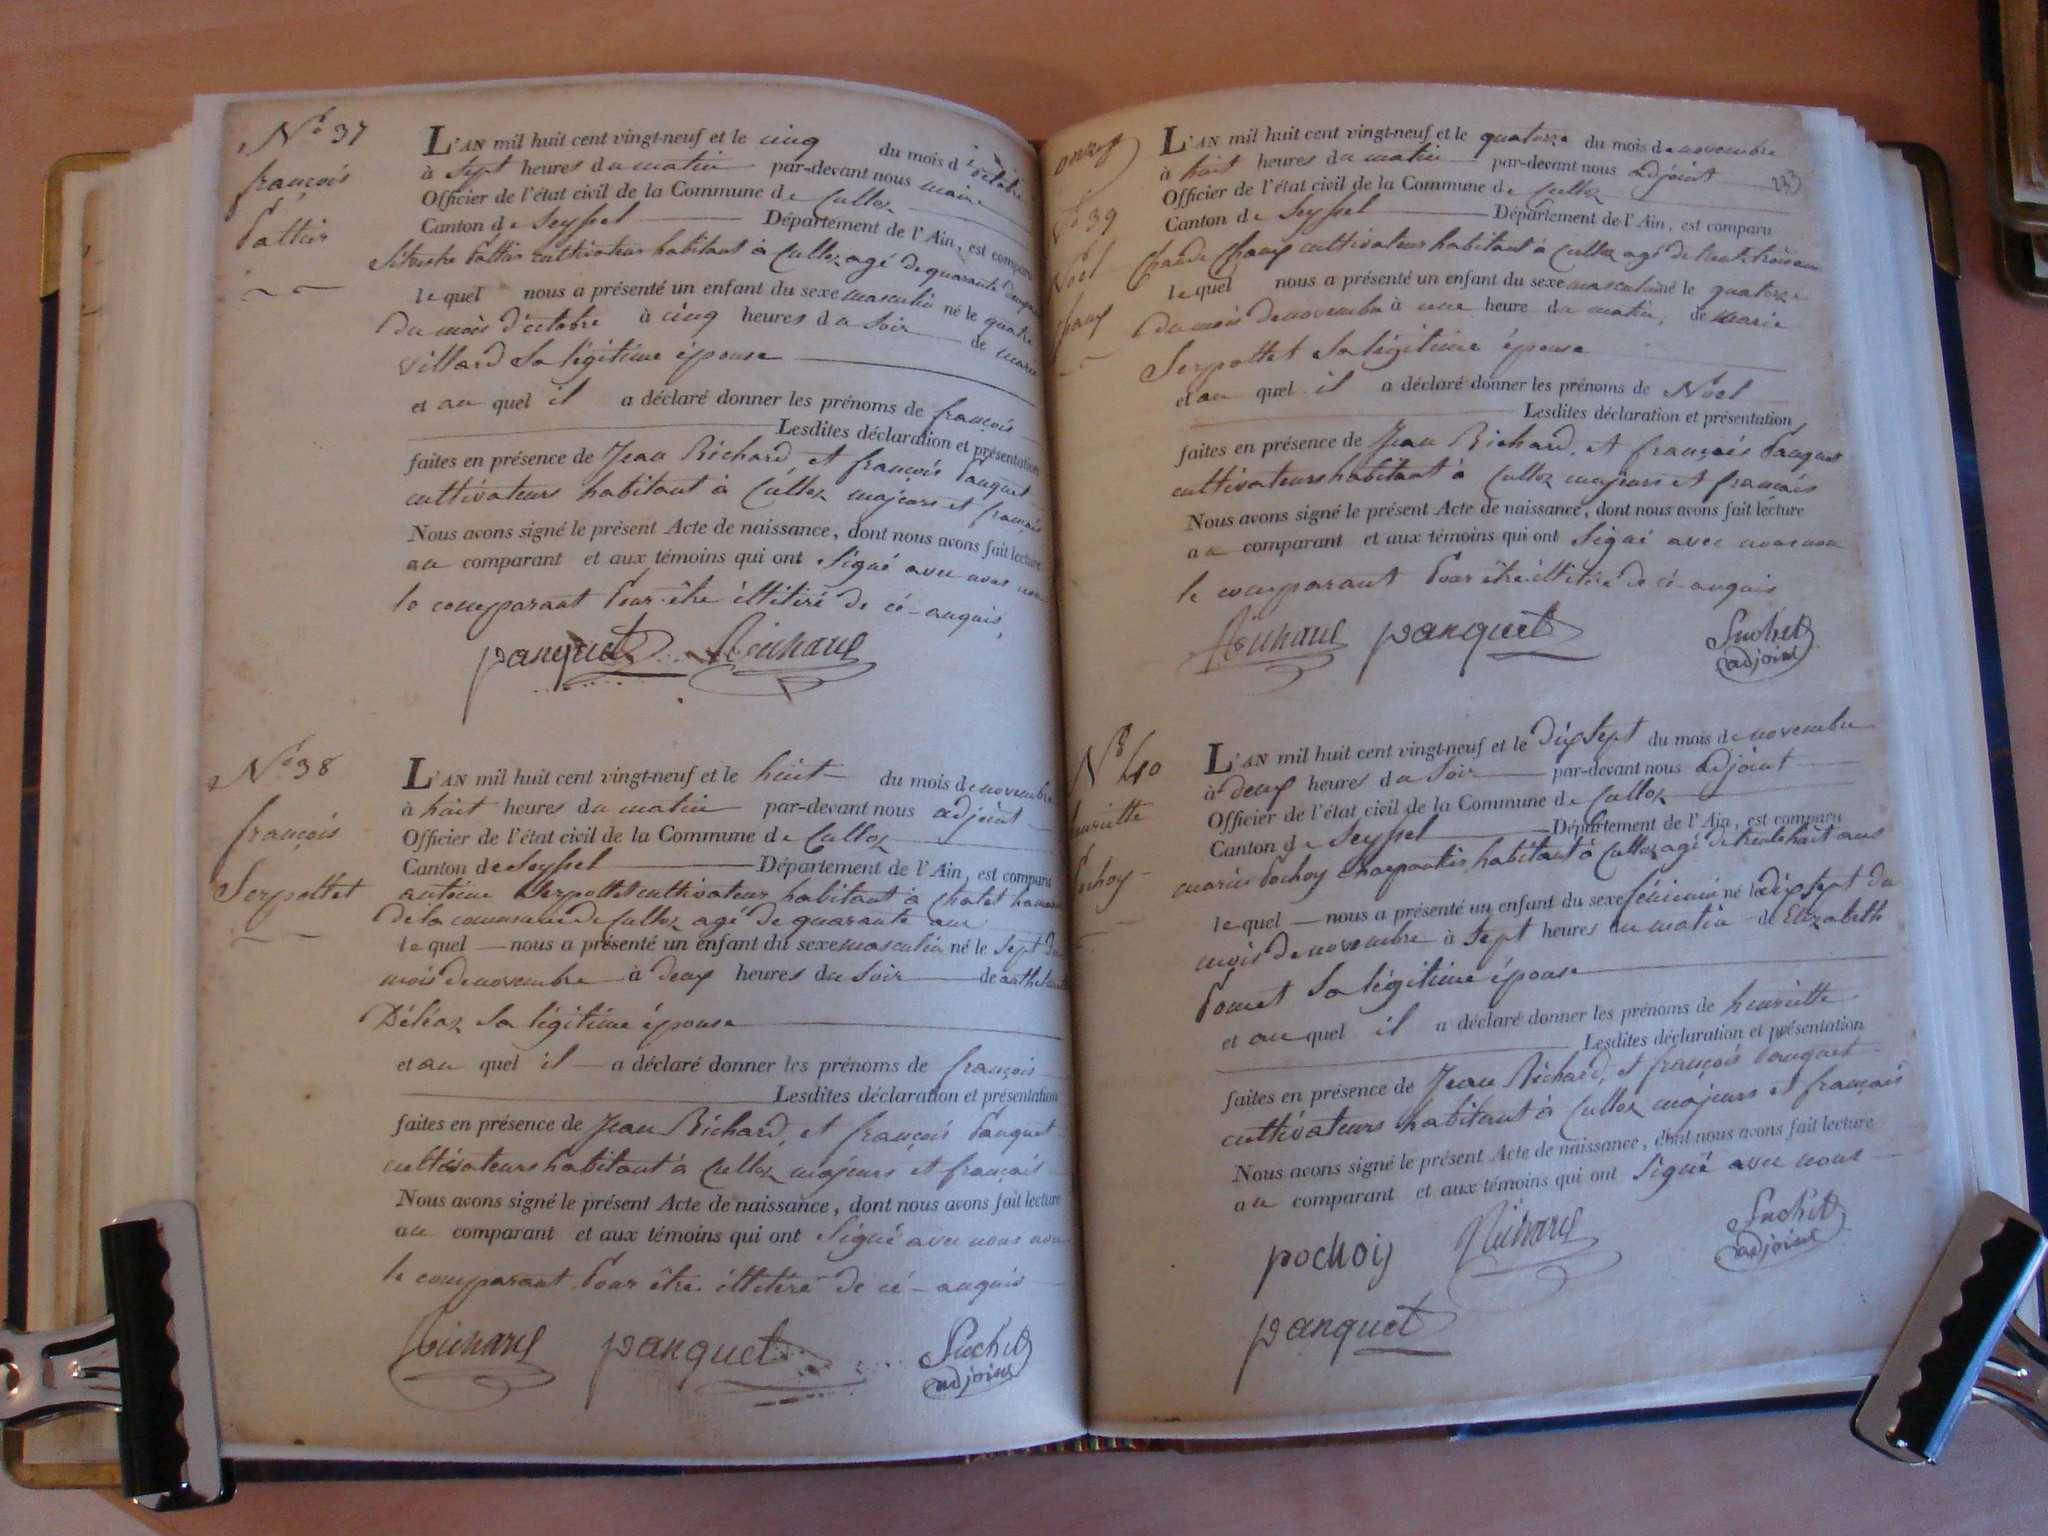 N° 37
françois
Pattier
L'AN mil huit cent vingt-neuf et le cinq du mois d'octobre
à sept heures du matin par-devant nous maire
Officier de l'état civil de la Commune de Culloz
Canton de Seyssel Département de l'Ain, est comparu
cultivateur habitant à Culloz agé de quarante
le quel nous a présenté un enfant du sexe masculin né le quatre
du mois d'octobre à cinq heures du soir de marie
Villard sa légitime épouse
et au quel il a déclaré donner les prénoms de françois
Lesdites déclaration et présentation
faites en présence de Jean Richard, et françois Panquet
cultivateurs habitant à Culloz majeurs et français
Nous avons signé le présent Acte de naissance, dont nous avons fait lecture
au comparant et aux témoins qui ont signé avec nous non
le comparant Pour être illitiré de cé-anquis,
panquet Richard
N° 38
françois
Serpollet
L'AN mil huit cent vingt-neuf et le huit du mois de novembre
à huit heures du matin par-devant nous adjoint
Officier de l'état civil de la Commune de Culloz
Canton de Seyssel Département de l'Ain, est comparu
antoine Serpollet cultivateur habitant à Chatel hameau
de la commune de Culloz agé de quarante ans
le quel nous a présenté un enfant du sexe masculin né le sept du
mois de novembre à deux heures du soir de
Déléaz sa légitime épouse
et au quel il a déclaré donner les prénoms de françois
Lesdites déclaration et présentation
faites en présence de Jean Richard, et françois Panquet
cultivateurs habitant à Culloz majeurs et français
Nous avons signé le présent Acte de naissance, dont nous avons fait lecture
au comparant et aux témoins qui ont signé avec nous non
le comparant Pour être illitiré de cé-anquis
Richard panquet Suchet
adjoint
N° 39
Noël
Chaux
L'AN mil huit cent vingt-neuf et le quatorze du mois de novembre
à huit heures du matin par-devant nous adjoint
233
Officier de l'état civil de la Commune de Culloz
Canton de Seyssel Département de l'Ain, est comparu
Claude Chaux cultivateur habitant à Culloz agé de trente trois ans
le quel nous a présenté un enfant du sexe masculin né le quatorze
du mois de novembre à une heure du matin, de marie
Serpollet sa légitime épouse
et au quel il a déclaré donner les prénoms de Noël
Lesdites déclaration et présentation
faites en présence de Jean Richard, et françois Panquet
cultivateurs habitant à Culloz majeurs et français
Nous avons signé le présent Acte de naissance, dont nous avons fait lecture
au comparant et aux témoins qui ont signé avec nous non
le comparant Pour être illitiré de cé-anquis
Richard panquet Suchet
adjoint
N° 40
henriette
Pochoy
L'AN mil huit cent vingt-neuf et le dix sept du mois de novembre
à deux heures du soir par-devant nous adjoint
Officier de l'état civil de la Commune de Culloz
Canton de Seyssel Département de l'Ain, est comparu
marin Pochoy charpentier habitant à Culloz agé de trente huit ans
le quel nous a présenté un enfant du sexe féminin né le dix sept du
mois de novembre à sept heures du matin de Elizabeth
Pomet sa légitime épouse
et au quel il a déclaré donner les prénoms de henriette
Lesdites déclaration et présentation
faites en présence de Jean Richard, et françois Panquet
cultivateurs habitant à Culloz majeurs et français
Nous avons signé le présent Acte de naissance, dont nous avons fait lecture
au comparant et aux témoins qui ont signé avec nous
pochoy Richard Suchet
adjoint
panquet